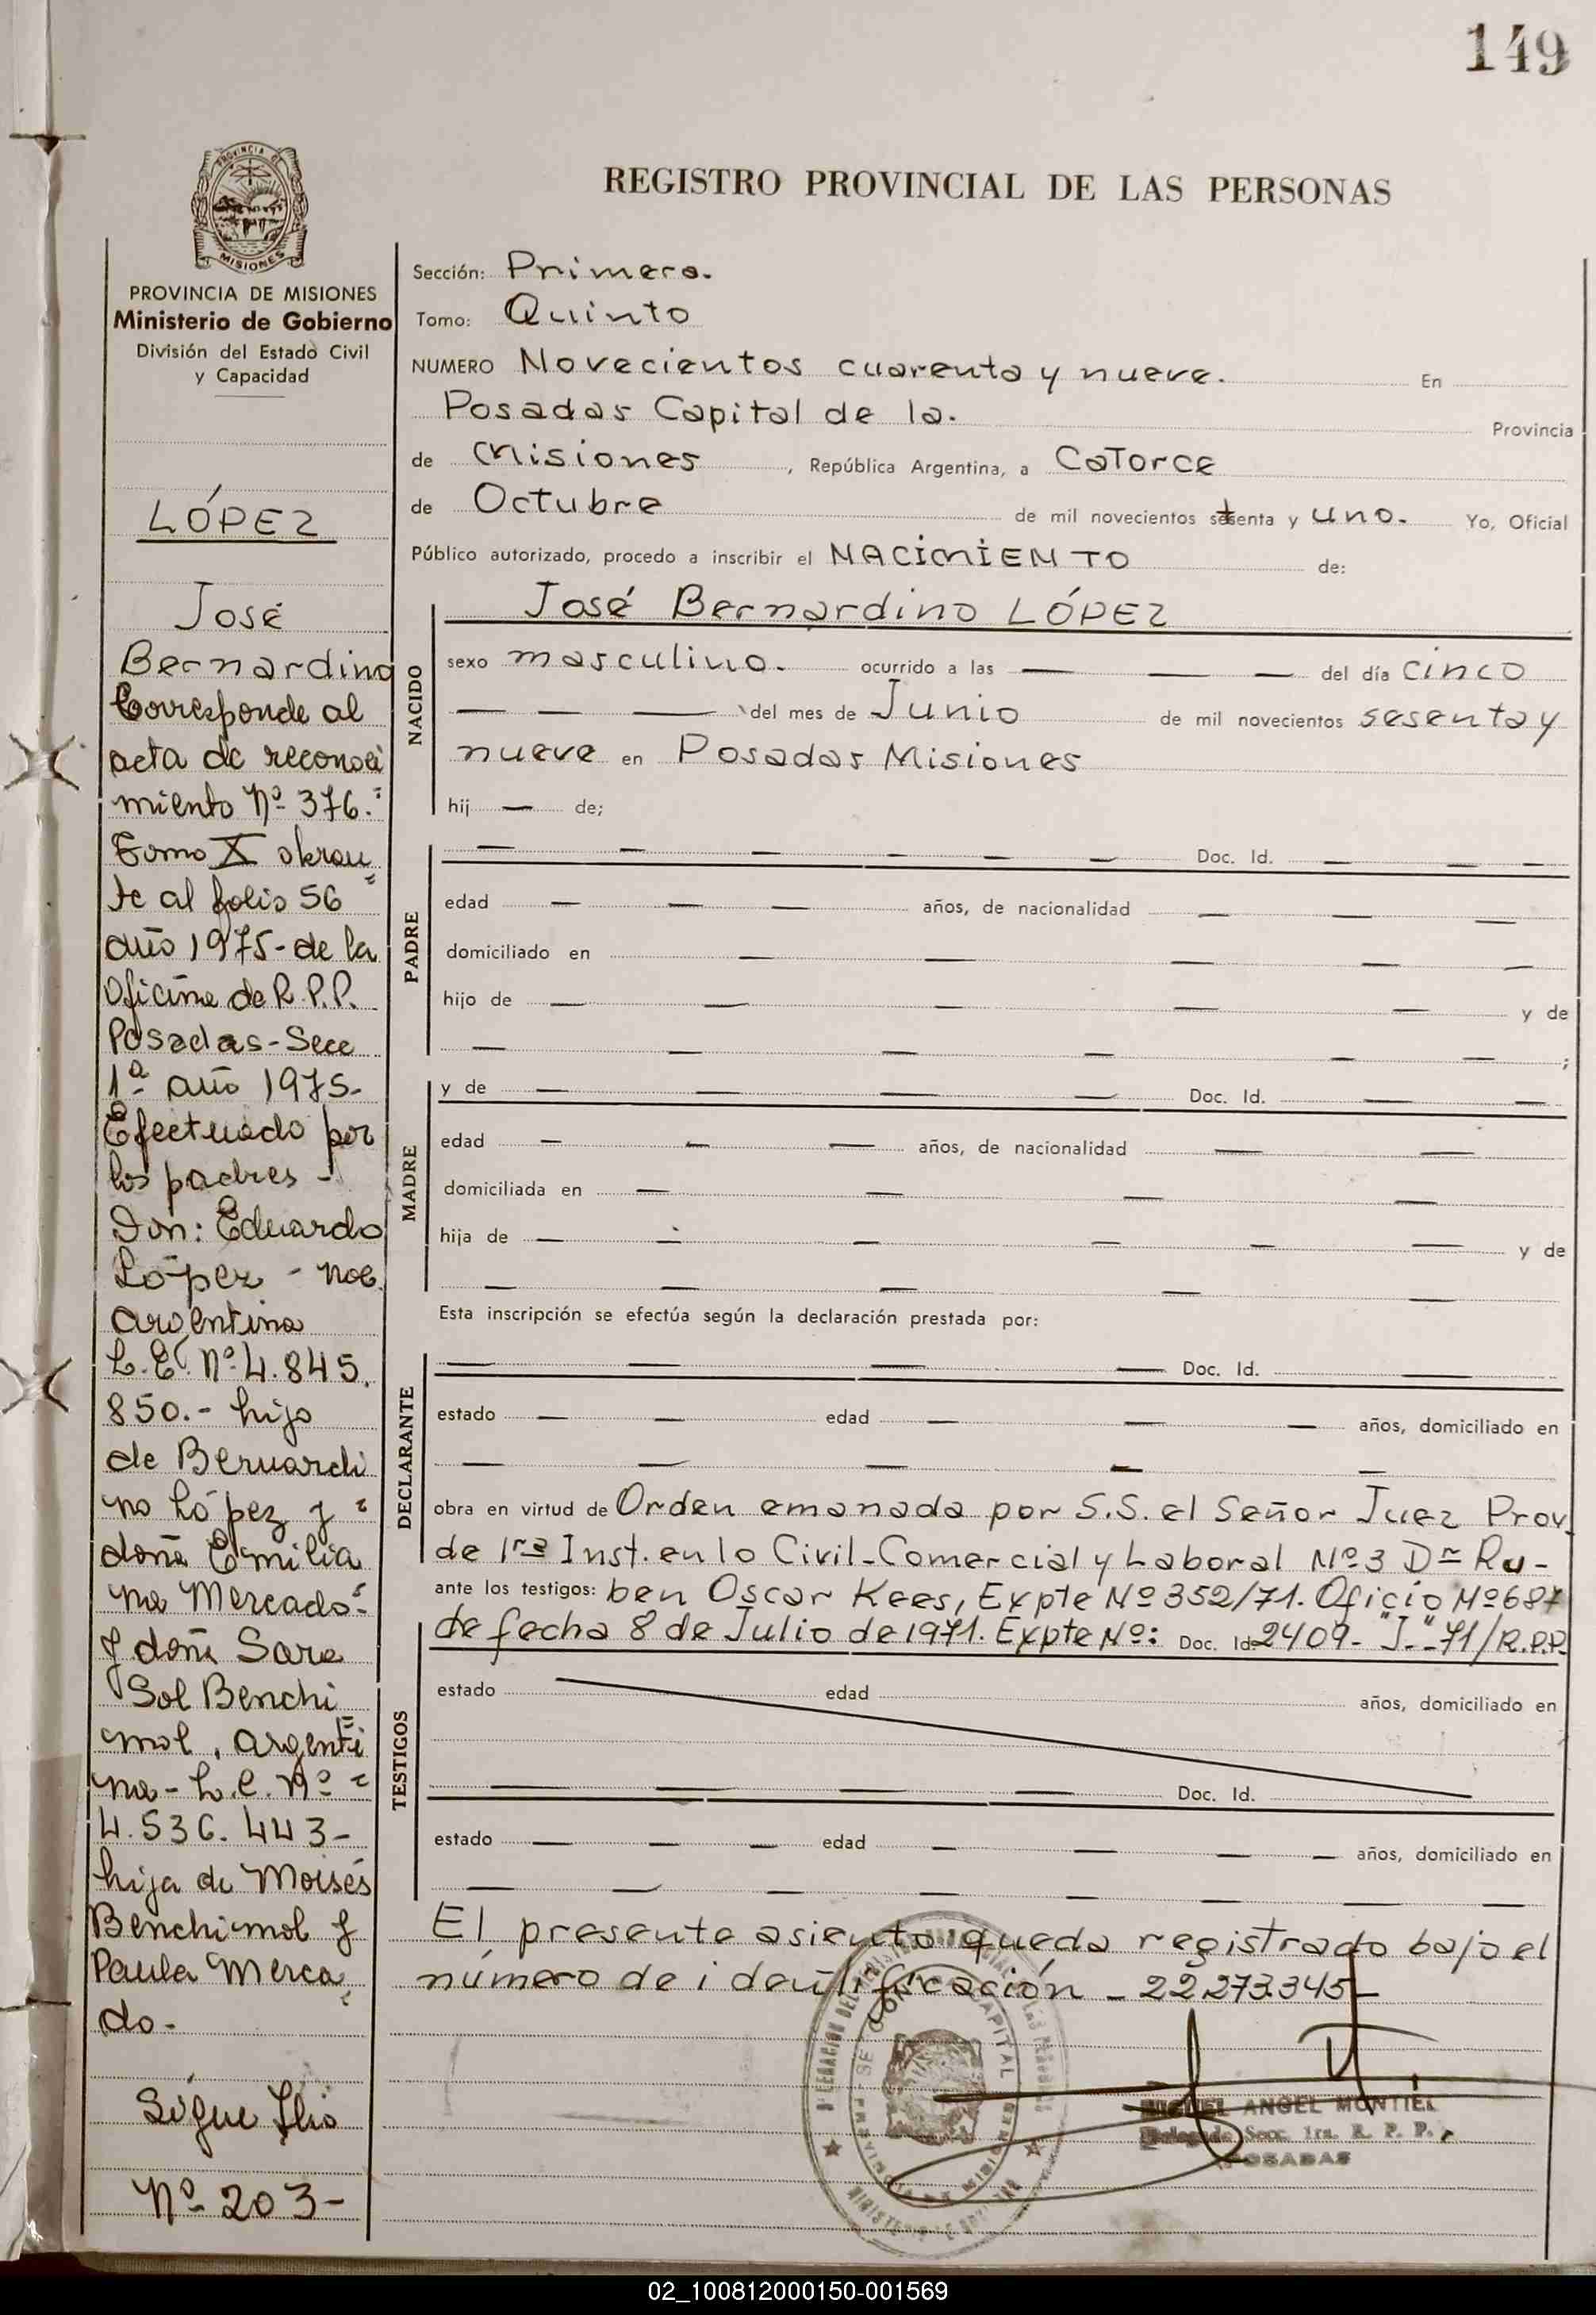 149
REGISTRO PROVINCIAL DE LAS PERSONAS
PROVINCIA DE
MISIONES
PROVINCIA DE MISIONES
Ministerio de Gobierno
División del Estado Civil
y Capacidad
LÓPEZ
José
Bernardino
Corresponde al
acta de reconoci
miento Nº 376.
Tomo X obran
te al folio 56
año 1975- de la
Oficina de R.P.P.
Posadas-Secc
1ª año 1975-
Efectuado por
los padres -
Don: Eduardo
López - nac.
argentina
L.E. Nº 4.845.
850.- hijo
de Bernardi
no López y
doña Emilia
na Mercado-
y doña Sara
Sol Benchi
mol, argenti
na - L.C. Nº
4.536.443-
hija de Moisés
Benchimol y
Paula Merca
do-
Sigue
Nº 203-
Sección: Primera.
Tomo: Quinto
NUMERO Novecientos cuarenta y nueve. En
Posadas Capital de la. Provincia
de Misiones, República Argentina, a Catorce
de Octubre de mil novecientos setenta y uno. Yo, Oficial
Público autorizado, procedo a inscribir el NACIMIENTO de:
José Bernardino LÓPEZ
NACIDO
sexo masculino. ocurrido a las — — — del día cinco
— — — del mes de Junio de mil novecientos sesenta y
nueve en Posadas Misiones
hij — de;
PADRE
— — — — — — Doc. Id. — — —
edad — — — años, de nacionalidad — — —
domiciliado en — — — —
hijo de — — — — — y de
— — — — — — ;
MADRE
y de — — — — Doc. Id. — —
edad — — — años, de nacionalidad — —
domiciliada en — — — —
hija de — — — — — — y de
— — — — —
Esta inscripción se efectúa según la declaración prestada por:
DECLARANTE
— — — — Doc. Id. —
estado — — edad — — — años, domiciliado en
— — — — —
obra en virtud de Orden emanada por S.S. el Señor Juez Prov.
de 1ra Inst. en lo Civil-Comercial y Laboral Nº 3 Dr Ru-
ante los testigos: ben Oscar Kees, Expte Nº 352/71. Oficio Nº 687
de fecha 8 de Julio de 1971. Expte Nº: Doc. Id. 2409-"J."-71/R.P.P.
TESTIGOS
estado edad años, domiciliado en
— — — — Doc. Id.
estado — — — edad — — — — años, domiciliado en
— — — — — — — —
El presente asiento queda registrado bajo el
número de identificación - 22.273.345-
MIGUEL ANGEL MONTIEL
Delegado Secc. 1ra. R. P. P.
POSADAS
02_100812000150-001569